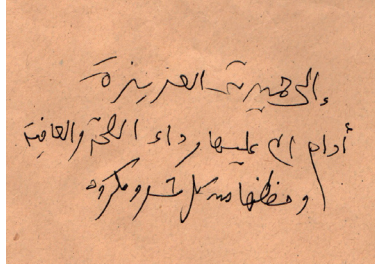 إلى خيرية العزيزة
أدام الله عليها رداء الصحة والعافية
وحفظها من كل شر ومكروه